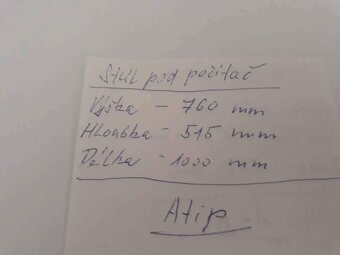 Stůl pod počítač
Výška - 760 mm
Hloubka - 515 mm
Délka - 1000 mm
Atip